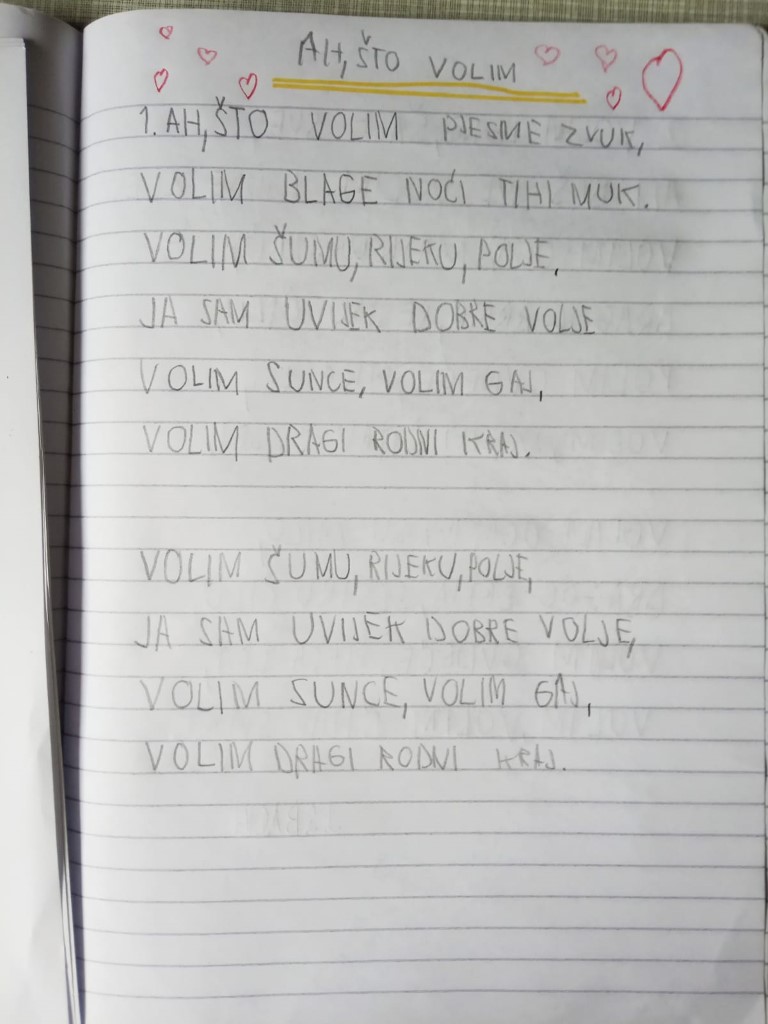 AH, ŠTO VOLIM
1. AH, ŠTO VOLIM PJESME ZVUK,
VOLIM BLAGE NOĆI TIHI MUK.
VOLIM ŠUMU, RIJEKU, POLJE,
JA SAM UVIJEK DOBRE VOLJE
VOLIM SUNCE, VOLIM GAJ,
VOLIM DRAGI RODNI KRAJ.
VOLIM ŠUMU, RIJEKU, POLJE,
JA SAM UVIJEK DOBRE VOLJE,
VOLIM SUNCE, VOLIM GAJ,
VOLIM DRAGI RODNI KRAJ.